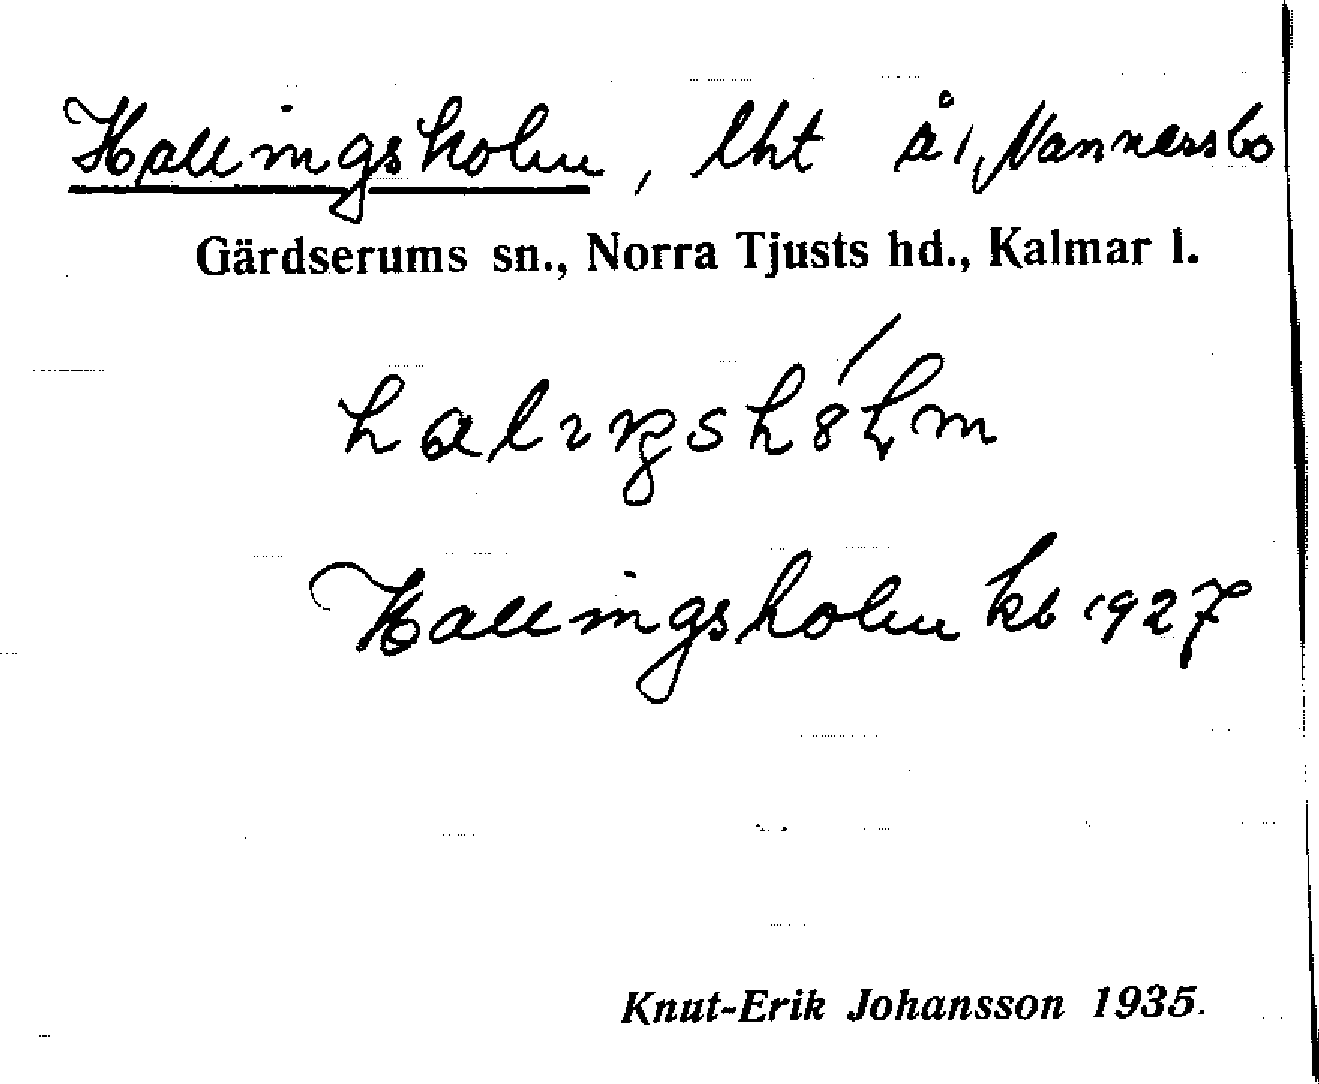 Hallingsholm, lht å 1, Nannersbo
Gärdserums sn., Norra Tjusts hd., Kalmar l.
Hallingsholm kb 1927
Knut-Erik Johansson 1935.